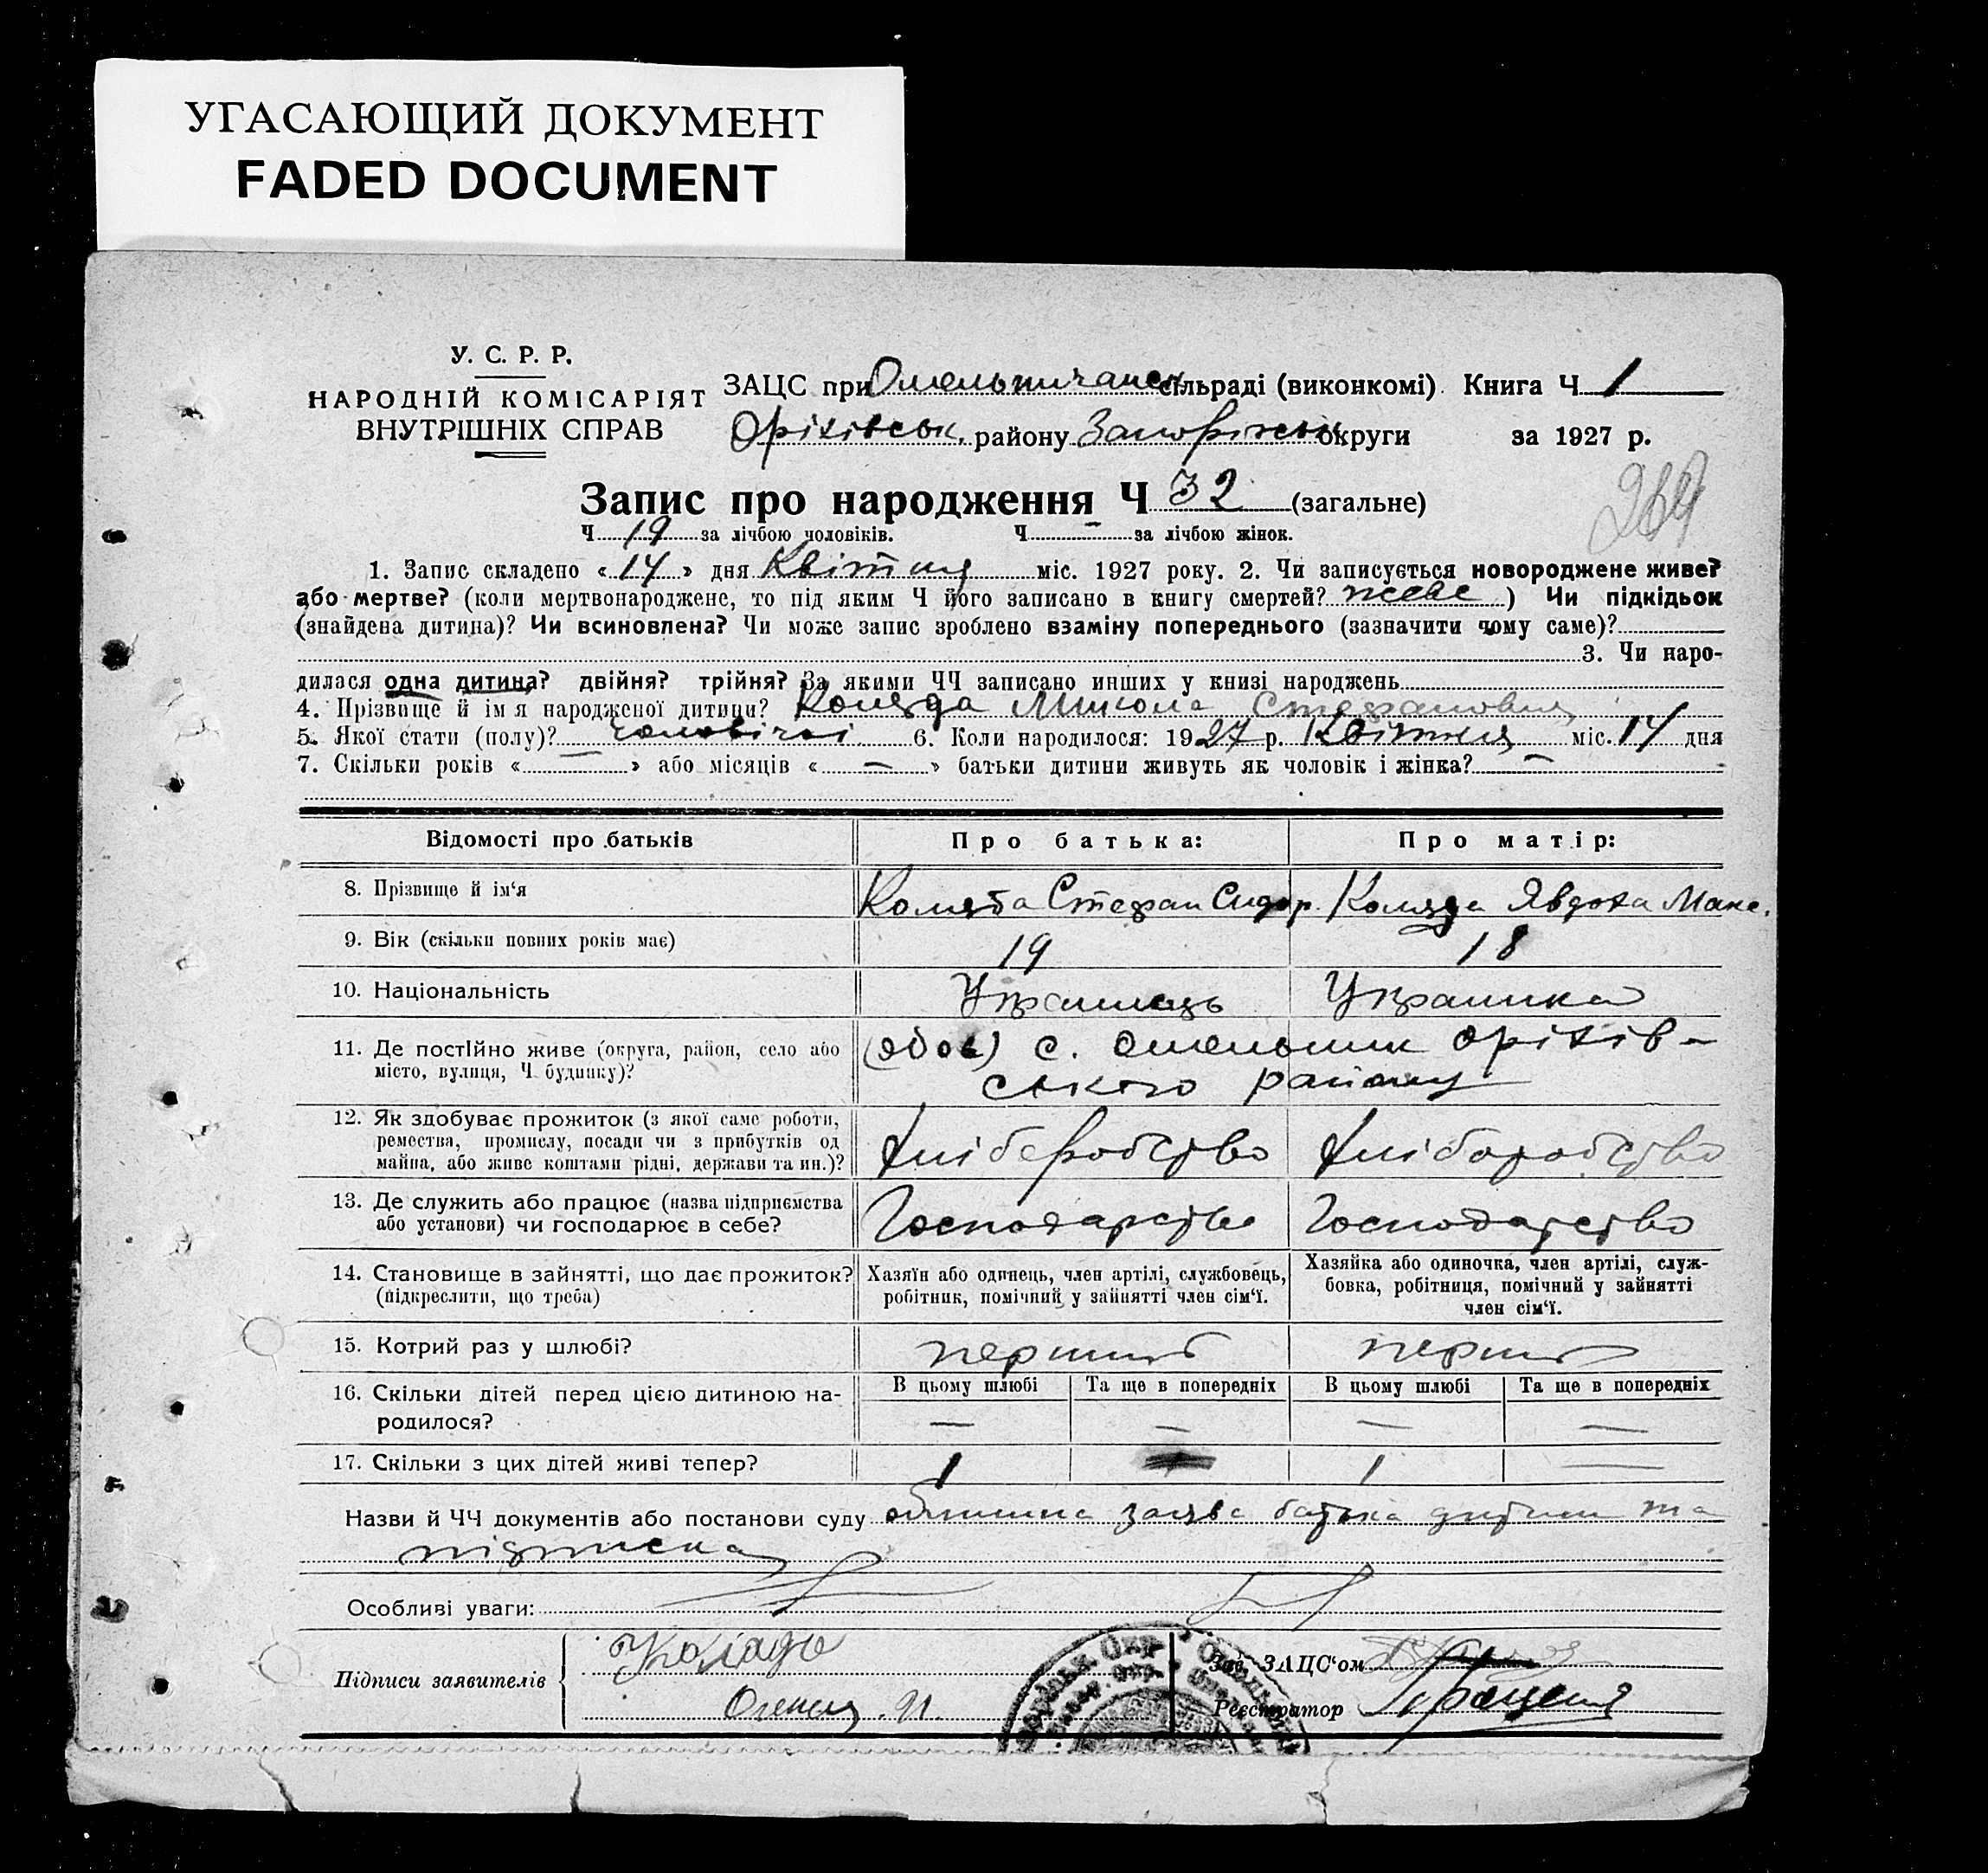 УГАСАЮЩИЙ ДОКУМЕНТ
FADED DOCUMENT
У. С. Р. Р.
НАРОДНІЙ КОМІСАРІЯТ
ВНУТРІШНІХ СПРАВ
ЗАЦС при Омельничанск сільраді (виконкомі). Книга Ч 1
Оріхівськ. району Запорізьк округи за 1927 р.
269
Запис про народження Ч 32 (загальне)
Ч 19 за лічбою чоловіків. Ч — за лічбою жінок.
1. Запис складено «14» дня Квітня міс. 1927 року. 2. Чи записується новороджене живе?
або мертве? (коли мертвонароджене, то під яким Ч його записано в книгу смертей? живе) Чи підкідьок
(знайдена дитина)? Чи всиновлена? Чи може запис зроблено взаміну попереднього (зазначити чому саме)?
3. Чи наро-
дилася одна дитина? двійня? трійня? За якими ЧЧ записано инших у книзі народжень
4. Прізвище й імя народженої дитини? Коляда Микола Стефанович
5. Якої стати (полу)? чоловічої 6. Коли народилося: 1927 р. Квітня міс. 14 дня
7. Скільки років « — » або місяців « — » батьки дитини живуть як чоловік і жінка? —
Відомості про батьків Про батька: Про матір:
8. Прізвище й ім‘я Коляда Стефан Сидор. Коляда Явдоха Макс.
9. Вік (скільки повних років має) 19 18
10. Національність Українець Українка
11. Де постійно живе (округа, район, село або (обоє) с. Омельник Оріхів-
місто, вулиця, Ч. будинку)? ського району
12. Як здобуває прожиток (з якої саме роботи,
ремества, промислу, посади чи з прибутків од Хліборобство Хліборобство
майна, або живе коштами рідні, держави та ин.)?
13. Де служить або працює (назва підприємства
або установи) чи господарює в себе? Господарство Господарство
14. Становище в зайнятті, що дає прожиток? Хазяїн або одинець, член артілі, службовець, Хазяйка або одиночка, член артілі, служ-
(підкреслити, що треба) робітник, помічний у зайнятті член сім‘ї. бовка, робітниця, помічний у зайнятті
член сім‘ї.
15. Котрий раз у шлюбі? перший перший
16. Скільки дітей перед цією дитиною на- В цьому шлюбі Та ще в попередніх В цьому шлюбі Та ще в попередніх
родилося? — — — —
17. Скільки з цих дітей живі тепер? 1 1 —
Назви й ЧЧ документів або постанови суду заява батька дитини та
підписка
Особливі уваги:
Підписи заявителів Коляда
Зав. ЗАЦС‘ом
Реєстратор